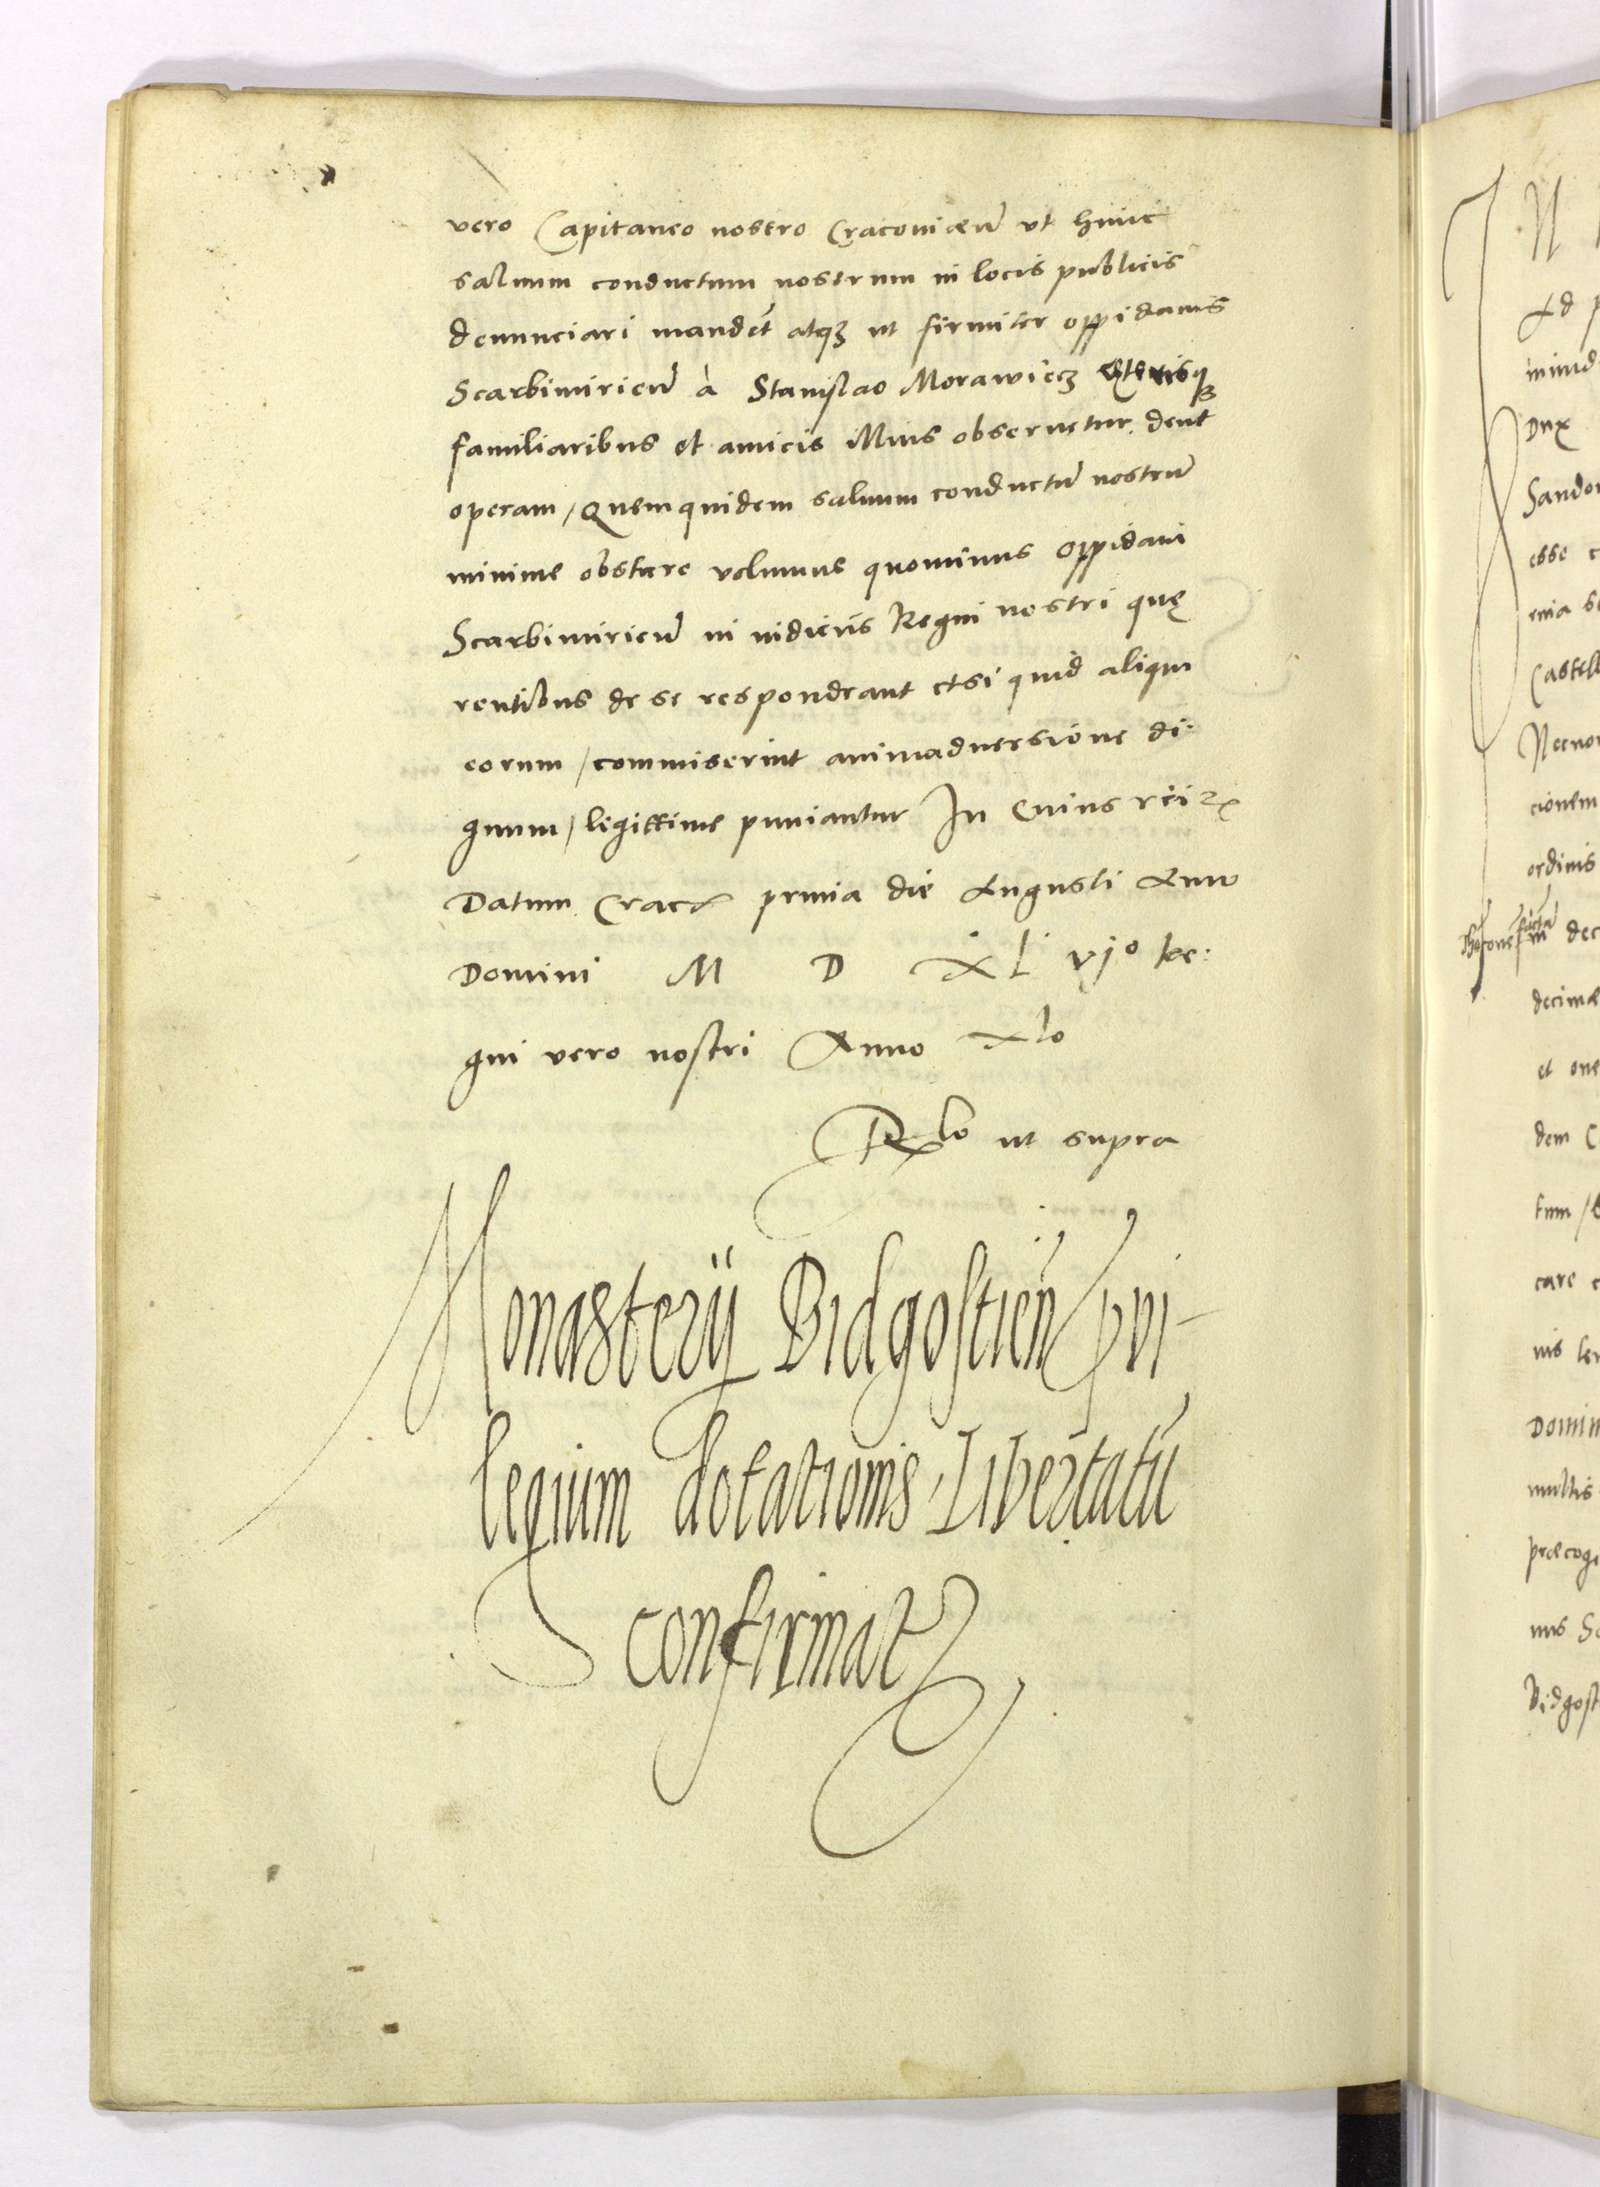 vero Capitaneo nostro Cracovieñ ut hunc
salvum conductum nostrum in locis publicis
denunciari mandet atqꝫ ut firmiter oppidanis
Scarbimirieñ à Stanislao Morawiecz Ceterisqꝫ
familiaribus et amicis illius observetur dent
operam, Quem quidem salvum conductū nostrū
minime obstare volumus quominus Oppidani
Scarbimirieñ in iudiciis Regni nostri quę
rentibus de se respondeant etsi quid aliqui
eorum, commiserint animadversione di-
gnum, legittime puniantur In Cuius rei ꝛc
Datum Crac prima die Augusti Anno
Domini M D XL vjo Re:
gni vero nostri Anno xlo
Rlo ut supra
Monasterij Bidgostień pvi-
legium dotationis Libertatū
confirmatꝫ
N
Ad p
Dux
Sandom
esse c
Castell
Necnon
cionem
ordinis
dec
decimæ
et one
dem C
tum, e
care c
nis
Domin
multis
præcog
nus Sc
Bidgost